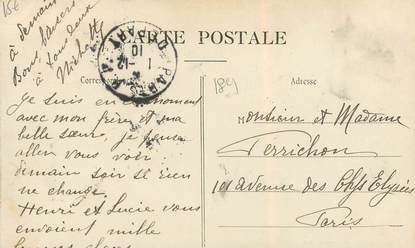 15€
à demain
Bons baisers
à vous deux
CARTE POSTALE
PARIS
189
Correspondance
Adresse
Je suis en ce moment
avec mon frère et ma
belle sœur, je pense
aller vous voir
demain soir si rien
ne change.
Henri et Lucie vous
envoient mille
Monsieur et Madame
Perrichon
101 avenue des Chps Elysées
Paris